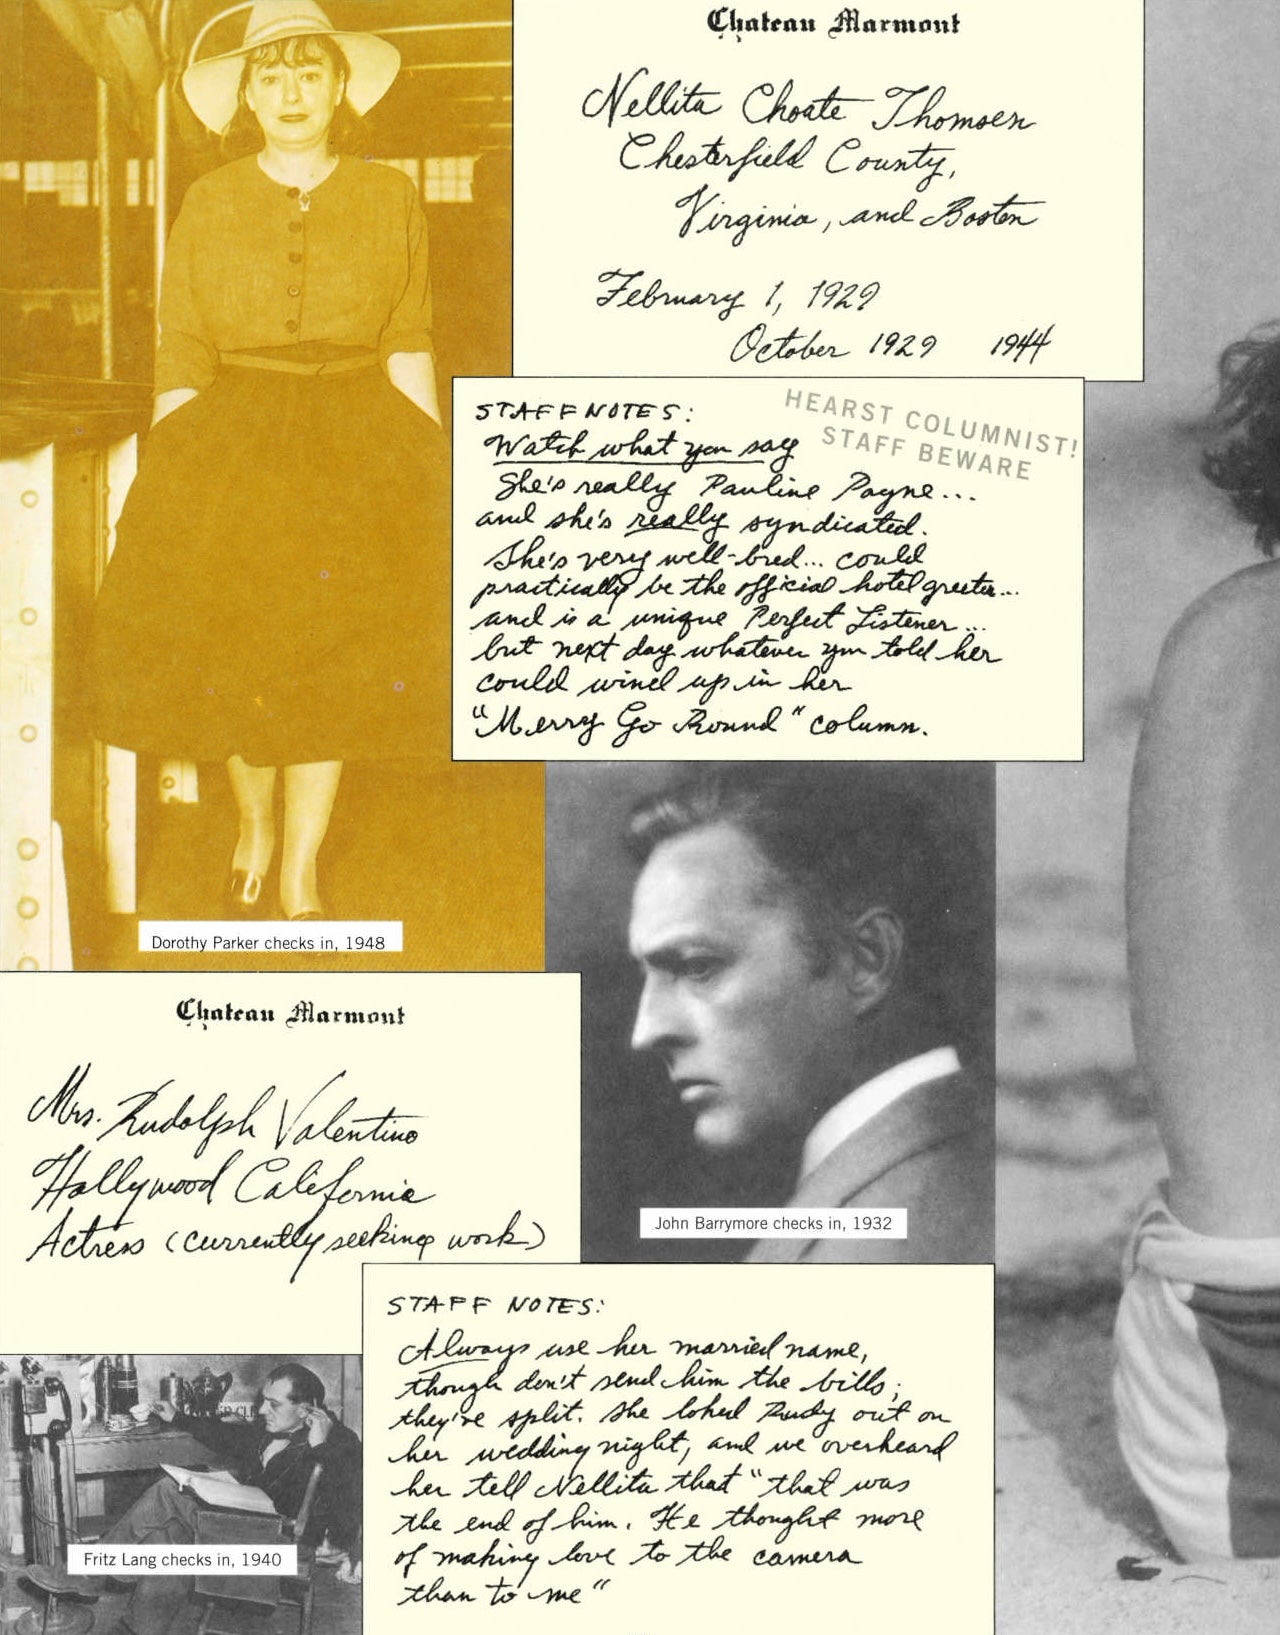 Chateau Marmont
Nellita Choate Thomsen
Chesterfield County,
Virginia, and Boston
February 1, 1929
October 1929 1944
STAFF NOTES:
HEARST COLUMNIST!
STAFF BEWARE
Watch what you say
She's really Pauline Payne...
and she's really syndicated.
She's very well-bred... could
practically be the official hotel greeter...
and is a unique Perfect Listener...
but next day whatever you told her
could wind up in her
"Merry Go Round" column.
Dorothy Parker checks in, 1948
Chateau Marmont
Mrs. Rudolph Valentino
Hollywood California
Actress (currently seeking work)
John Barrymore checks in, 1932
STAFF NOTES:
Always use her married name,
though don't send him the bills;
they're split. She loked Rudy out on
her wedding night, and we overheard
her tell Nellita that "that was
the end of him. He thought more
of making love to the camera
than to me"
Fritz Lang checks in, 1940